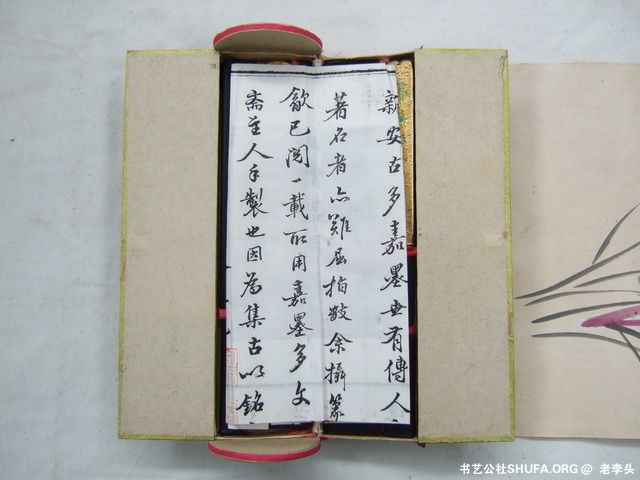 新安古多嘉墨世有傳人
著名者亦難屈指數余攝篆
歙已閱一載所用嘉墨多文
斋主人手製也因為集古以銘
书艺公社SHUFA.ORG @ 老李头